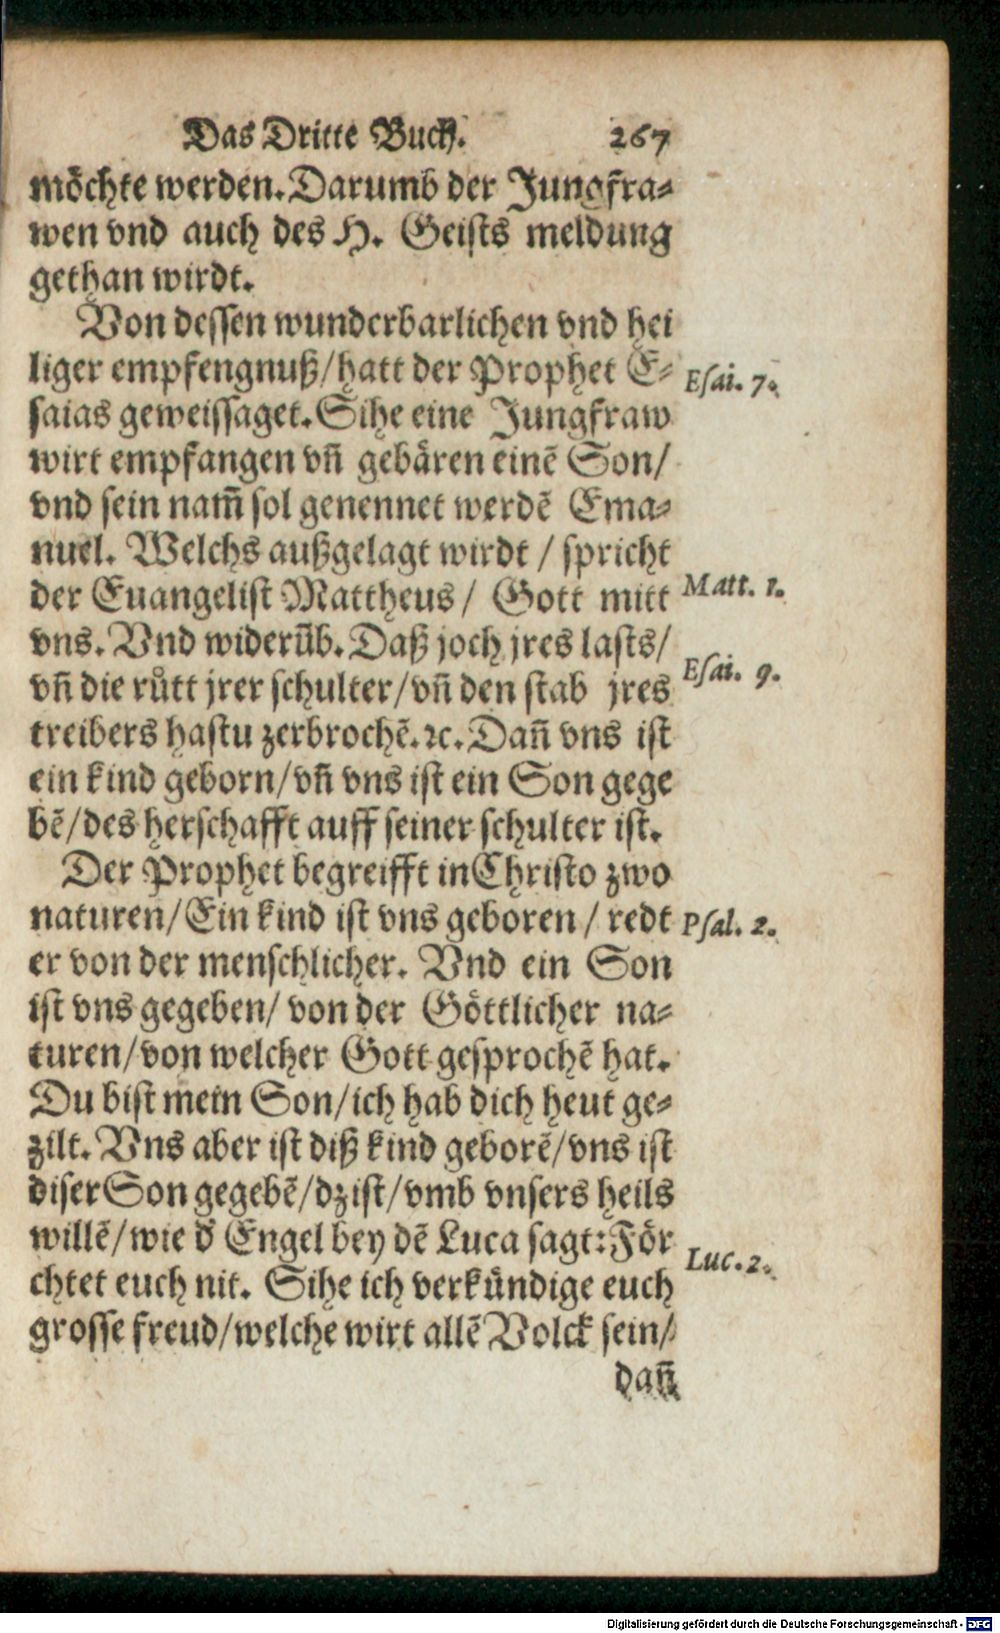 Das Dritte Buch. 267
möchte werden. Darumb der Jungfra⸗
wen vnd auch des H. Geists meldung
gethan wirdt.
Von dessen wunderbarlichen vnd hei
liger empfengnuß/hatt der Prophet E⸗ Esai. 7.
saias geweissaget. Sihe eine Jungfraw
wirt empfangen vñ gebären einẽ Son/
vnd sein nam̃ sol genennet werdẽ Ema⸗
nuel. Welchs außgelagt wirdt / spricht
der Euangelist Mattheus/ Gott mitt Matt. 1.
vns. Vnd widerũb. Daß joch jres lasts/
vñ die růtt jrer schulter/vñ den stab jres Esai. 9.
treibers hastu zerbrochẽ. ꝛc. Dañ vns ist
ein kind geborn/vñ vns ist ein Son gege
bẽ/des herschafft auff seiner schulter ist.
Der Prophet begreifft in Christo zwo
naturen/Ein kind ist vns geboren/ redt Psal. 2.
er von der menschlicher. Vnd ein Son
ist vns gegeben/ von der Göttlicher na⸗
turen/von welcher Gott gesprochẽ hat.
Du bist mein Son/ich hab dich heut ge⸗
zilt. Vns aber ist diß kind geborẽ/vns ist
diser Son gegebẽ/dz ist/vmb vnsers heils
willẽ/wie d̕ Engel bey dẽ Luca sagt: För Luc. 2.
chtet euch nit. Sihe ich verkündige euch
grosse freud/welche wirt allẽ Volck sein/
dañ
Digitalisierung gefördert durch die Deutsche Forschungsgemeinschaft - DFG